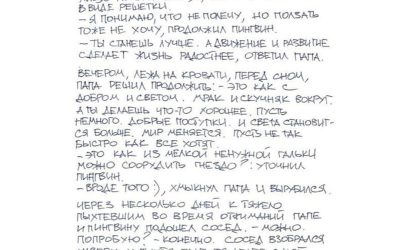 в виде решетки.
- Я понимаю, что не полечу, но ползать
тоже не хочу, продолжил пингвин.
- Ты станешь лучше. А движение и развитие
сделает жизнь радостнее, ответил папа.
Вечером, лежа на кровати, перед сном,
папа решил продолжить: - Это как с
добром и светом. Мрак и скучняк вокруг.
А ты делаешь что-то хорошее. Пусть
немного. Добрые поступки. И света становит-
ся больше. Мир меняется. Пусть не так
быстро как все хотят.
- Это как из мелкой ненужной гальки
можно соорудить гнездо? уточнил
пингвин.
- Вроде того :), хмыкнул папа и вырубился.
Через несколько дней к тяжело
пыхтевшим во время отжиманий папе
и пингвину подошел сосед. - Можно
попробую? - Конечно. Сосед взобрался